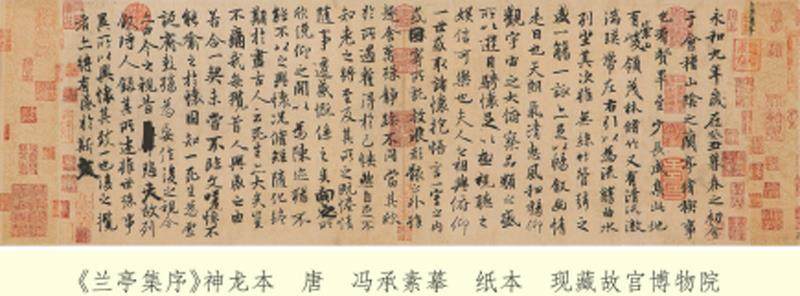 永和九年歲在癸丑暮春之初會
于會稽山陰之蘭亭脩稧事
也羣賢畢至少長咸集此地
有崇山峻領茂林脩竹又有清流激
湍暎帶左右引以為流觴曲水
列坐其次雖無絲竹管弦之
盛一觴一詠亦足以暢敘幽情
是日也天朗氣清惠風和暢仰
觀宇宙之大俯察品類之盛
所以遊目騁懷足以極視聽之
娛信可樂也夫人之相與俯仰
一世或取諸懷抱悟言一室之內
或因寄所託放浪形骸之外雖
趣舍萬殊靜躁不同當其欣
於所遇蹔得於己怏然自足不
知老之將至及其所之既惓情
隨事遷感慨係之矣向之所
欣俛仰之閒以為陳迹猶不
能不以之興懷況脩短隨化終
期於盡古人云死生亦大矣豈
不痛哉每攬昔人興感之由
若合一契未嘗不臨文嗟悼不
能喻之於懷固知一死生為虛
誕齊彭殤為妄作後之視今
亦由今之視昔悲夫故列
敘時人錄其所述雖世殊事
異所以興懷其致一也後之攬
者亦將有感於斯文
《兰亭集序》神龙本 唐 冯承素摹 纸本 现藏故宫博物院